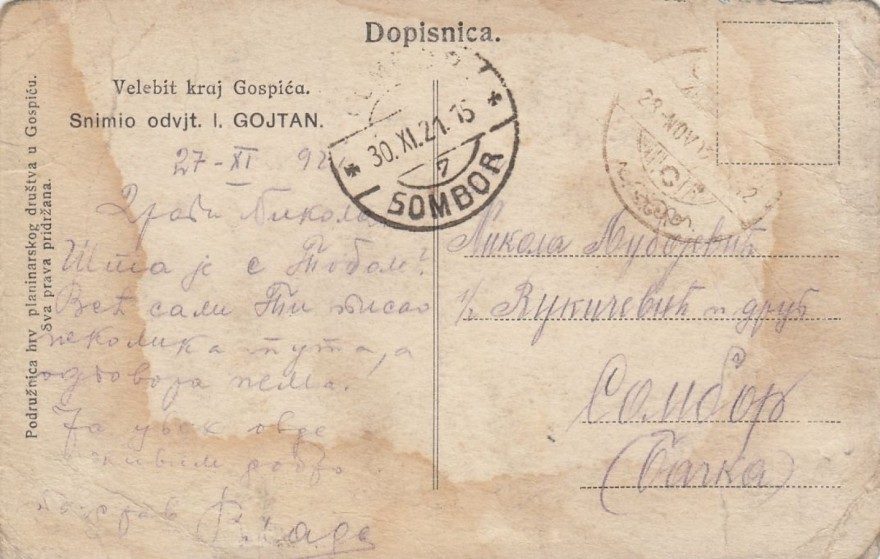 Dopisnica.
Velebit kraj Gospića.
Snimio odvjt. I. GOJTAN.
Podružnica hrv planinarskog društva u Gospiću.
Sva prava pridržana.
30.XI.21.15
7
SOMBOR
28-NOV
2
27-XI 92
Драги Никола,
Шта је с Тобом?
Већ сам Ти писао
неколика пута, а
одговора нема.
Ја увек овде
живим добро
Поздрав
Никола
Вукичевић и друг
Сомбор
(Бачка)